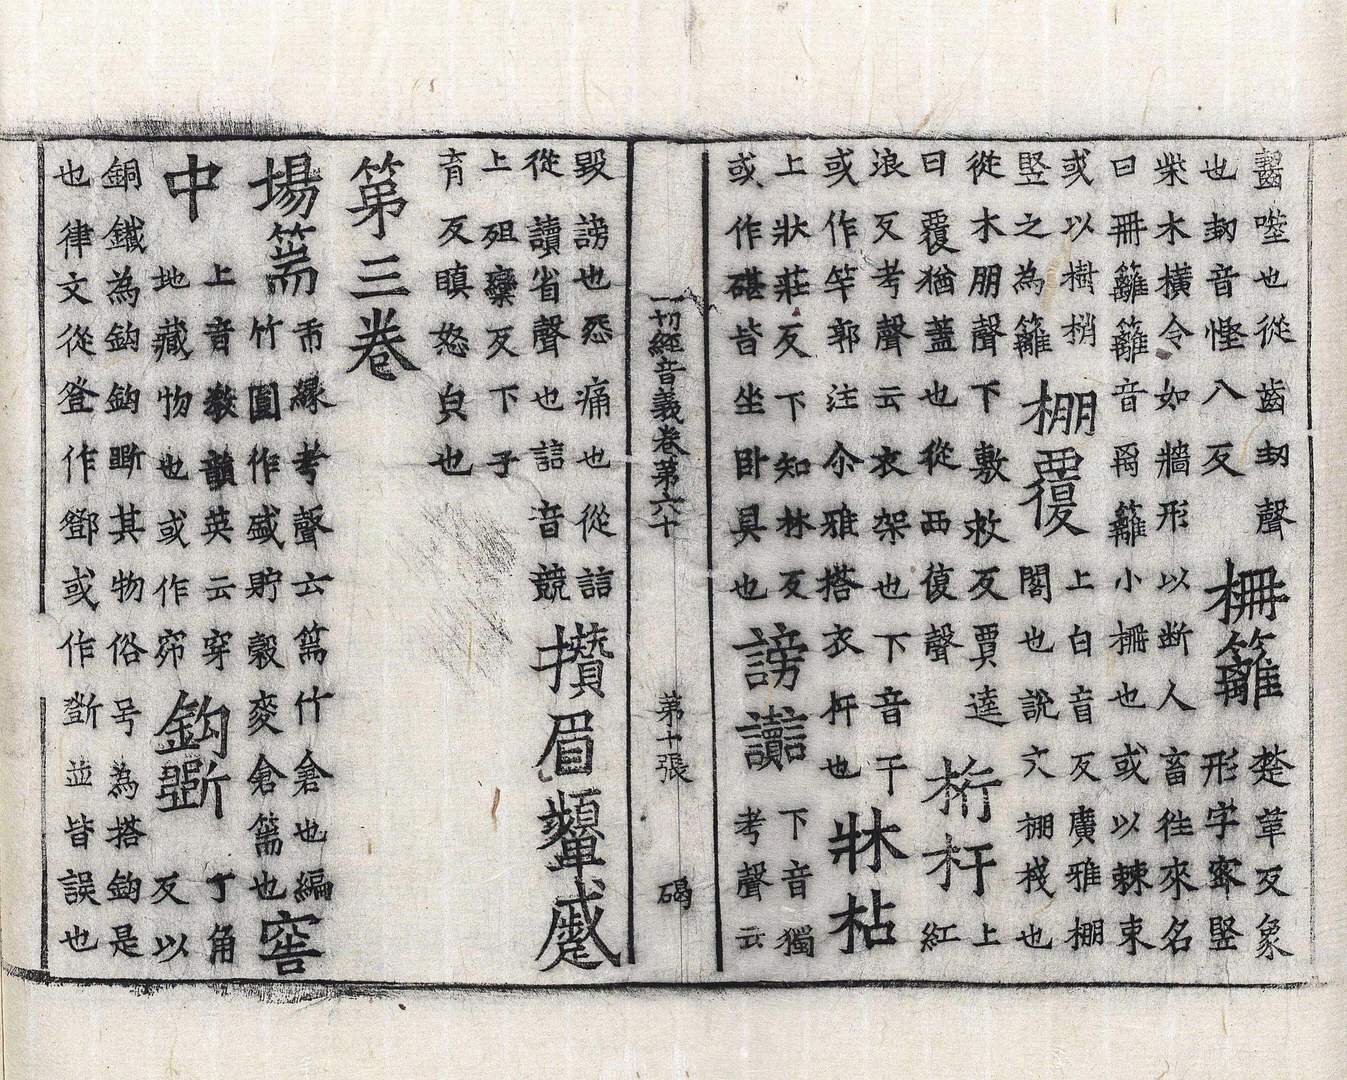 齧噬也從齒㓞聲
也㓞音慳八反
柵籬
楚革反象
形字案竪
柴木橫令如牆形以断人畜徃來名
曰冊籬籬音离籬小柵也或以棘束
或以樹梢
竪之為籬
棚覆
上白音反廣雅棚
閣也說文棚棧也
從木朋聲下敷救反賈逵
曰覆猶蓋也從襾復聲
桁杆
上
紅
浪反考聲云衣架也下音干
或作竿郭注尒雅搭衣杆也
牀枮
上狀莊反下知林反
或作碪皆坐卧具也
謗讟
下音獨
考聲云
一切經音義卷苐六十 苐十張 碣
毀謗也惌痛也從誩
從讀省聲也誩音競
攢眉顰蹙
上殂欒反下子
育反瞋怒皃也
第三卷
場篅
巿緣考聲云篅竹倉也編
竹圓作盛貯穀麥倉篅也
窖
中
上音教韻英云穿
地藏物也或作窌
鈎斲
丁角
反以
銅鐵為鈎鈎斲其物俗号為搭鈎是
也律文從登作鐙或作㔁並皆誤也